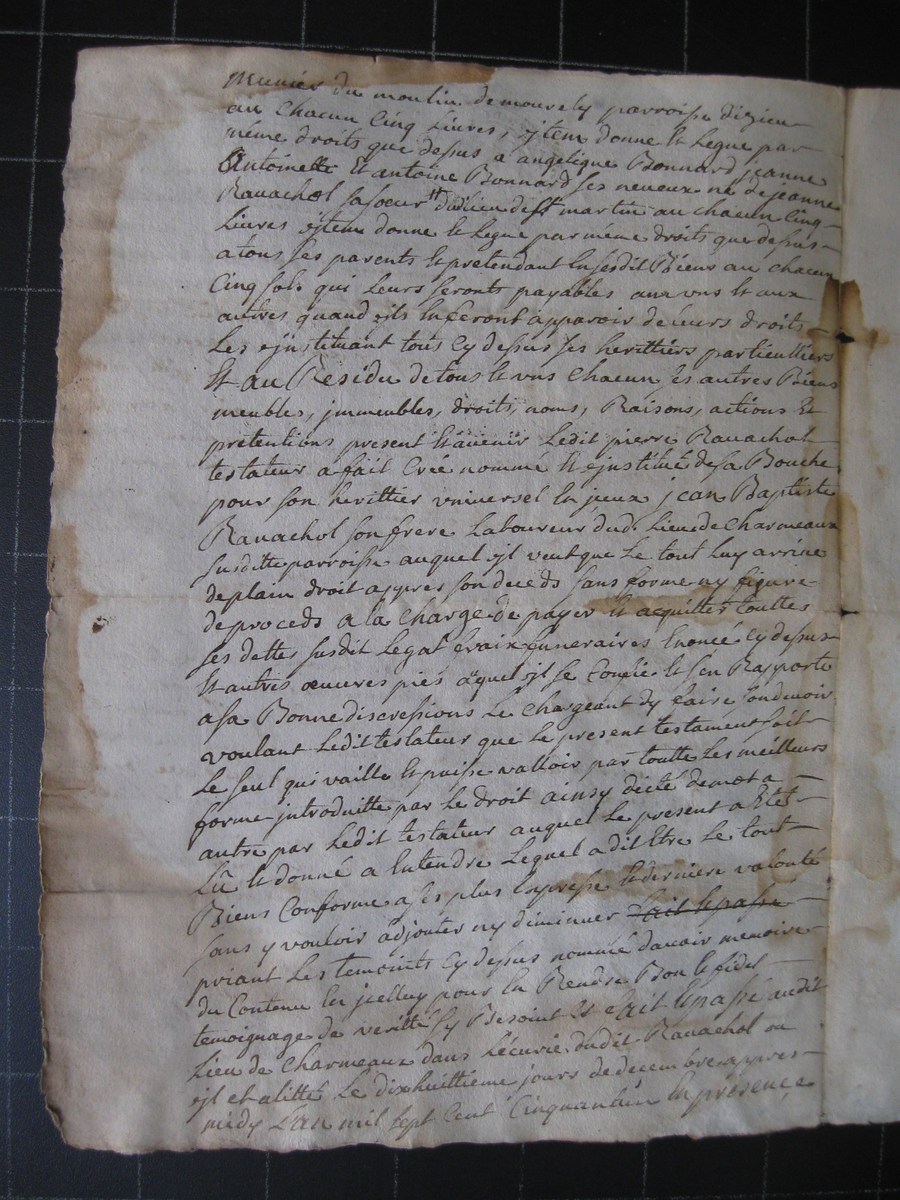 munier du moulin de mourely parroisse dizieu
au chacun Cinq Livres, jtem donne et Legue par
même droits que dessus a angelique Bonnard jeanne
Antoinette Et antoine Bonnard ses neveux né de jeanne
Ravachol sa soeur dudit lieu de st martin au chacun Cinq
Livres ejtem donne et Legue par même droits que dessus
a tous ses parents Et pretendant en sesdit Biens au chacun
Cinq sols qui Leurs seronts payables aux uns Et aux
autres quand ejls en feront apparoir de Leurs droits
Les ejnstituant tous Cy dessus ses herittiers particulliers
Et au Residu de tous Et uns chacun ses autres Biens
meubles, jmmeubles, droits, noms, Raisons, actions Et
pretentions present Et avenir Ledit pierre Ravachol
testateur a fait Crée nommé Et ejnstitué de sa Bouche
pour son herittier universel en jceux jean Baptiste
Ravachol son frere Laboureur dud. Lieu de Charmeaux
susditte parroisse auquel ejl veut que Le tout Luy arrive
de plain droit appres son deceds sans forme ny figure
de proceds a la Charge de payer Et acquitter touttes
ses dettes susdit Legat fraix funeraires Enoncé Cy dessus
Et autres oeuvres pies aquel ejl se Confie Et sen Rapporte
a sa Bonne discressions Le Chargeant dy faire son devoir
voulant Ledit testateur que Le present testament soit
Le seul qui vaille Et puisse valloir par toutte Les meilleurs
forme jntroduitte par Le droit ainsy dicté de mot a
autre par Ledit testateur auquel Le present a Etet
Lû Et donné a Entendre Lequel a dit Etre Le tout
Biens Conforme a ses plus Expresse Et derniere volonté
sans y vouloir adjouter ny diminuer fait Et passé
priant Les temoints Cy dessus nommé davoir memoire
du Contenu En jcelluy pour En Rendre Bon Et fidel
temoignage de veritté sy Besoint Est fait Et passé audit
Lieu de Charmeaux dans Lécurie dudit Ravachol ou
ejl est alitté Le dixhuittieme jours de decembre appres
midy L'an mil sept Cent Cinquantun En presence